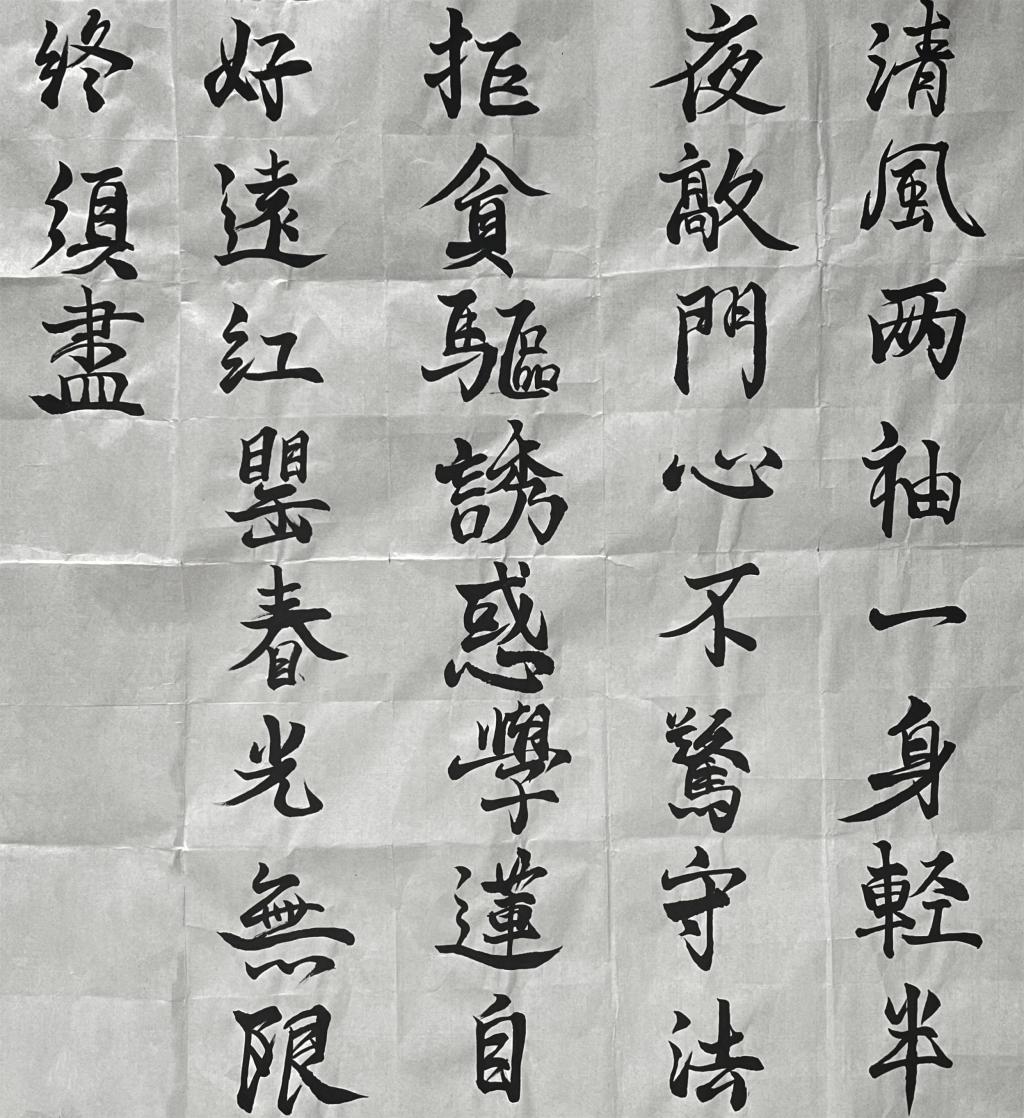 清風两袖一身輕半
夜敲門心不驚守法
拒貪驅誘惑學蓮自
好遠红罌春光無限
終須盡